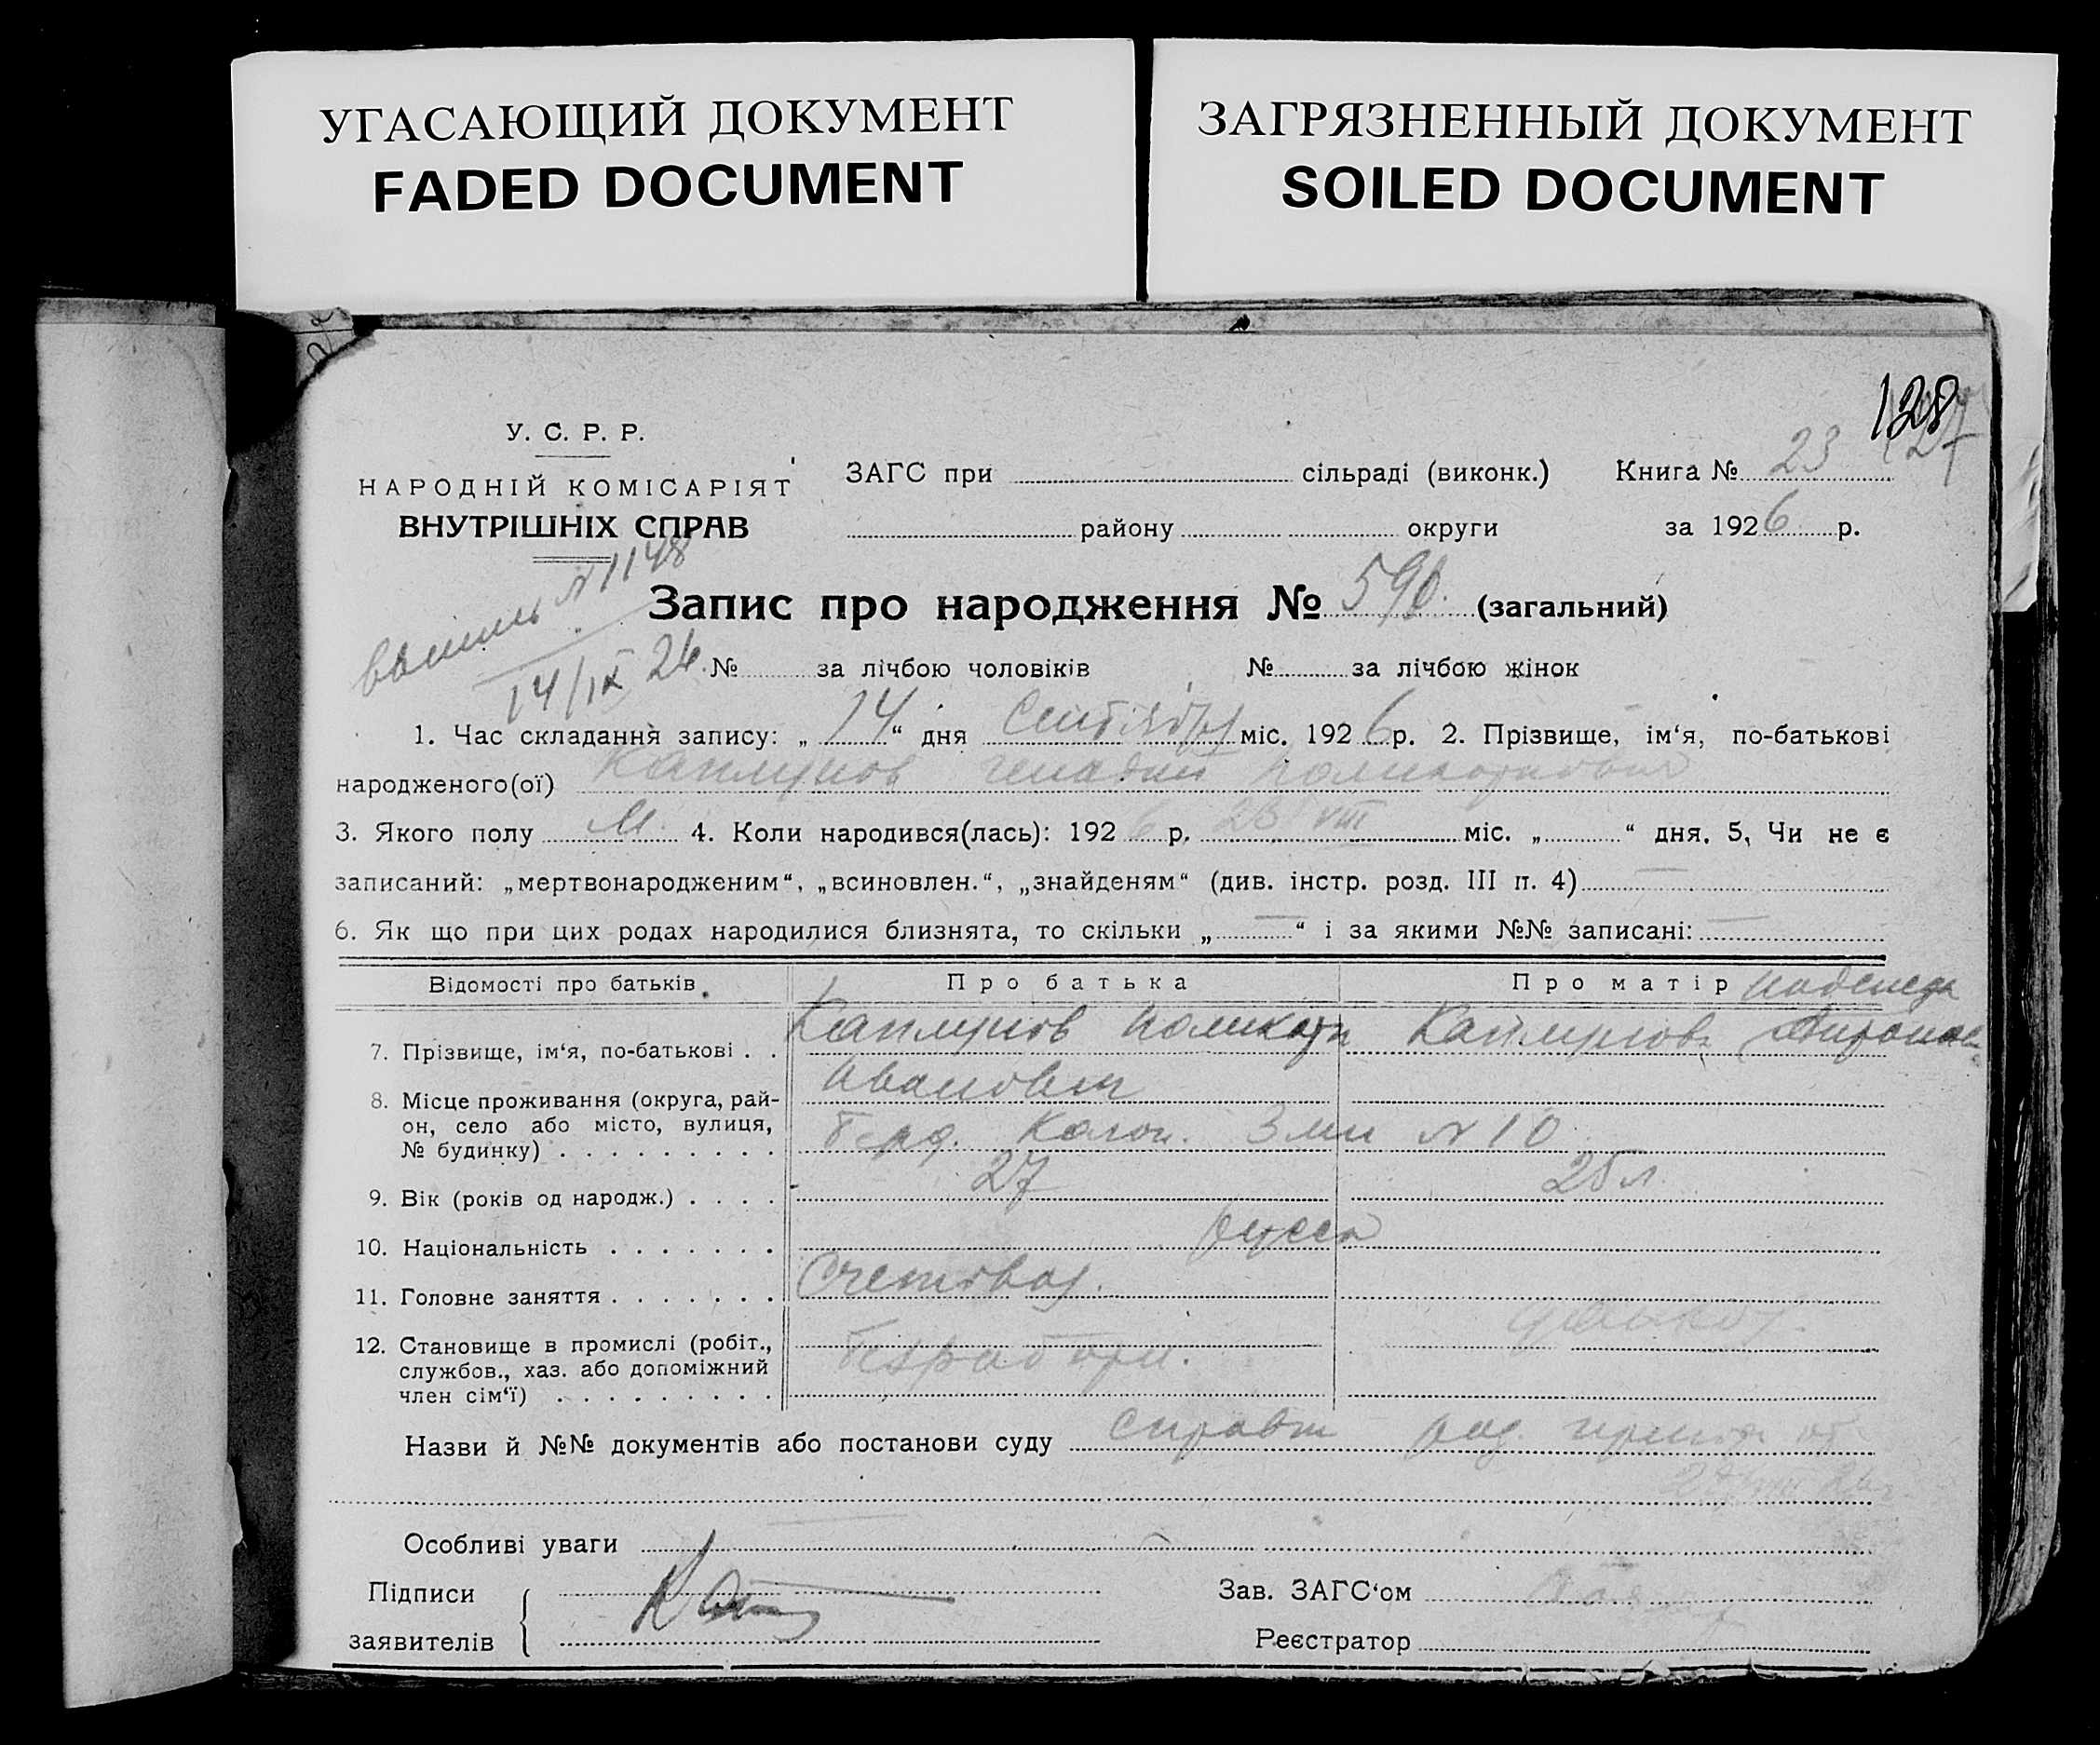 УГАСАЮЩИЙ ДОКУМЕНТ
FADED DOCUMENT
ЗАГРЯЗНЕННЫЙ ДОКУМЕНТ
SOILED DOCUMENT
128
127
У. С. Р. Р.
НАРОДНІЙ КОМІСАРІЯТ
ВНУТРІШНІХ СПРАВ
ЗАГС при сільраді (виконк.) Книга № 23
району округи за 1926 р.
№ 1148
14/IX 26.
Запис про народження № 596. (загальний)
№ за лічбою чоловіків № за лічбою жінок
1. Час складання запису: „14“ дня Сентября міс. 1926 р. 2. Прізвище, ім‘я, по-батькові
народженого(ої) Каплунов Генадий Поликарпович
3. Якого полу М. 4. Коли народився(лась): 1926 р. 23 VIII міс. „ “ дня. 5, Чи не є
записаний: „мертвонародженим“, „всиновлен.“, „знайденям“ (див. інстр. розд. III п. 4) —
6. Як що при цих родах народилися близнята, то скільки „—“ і за якими №№ записані: —
Відомості про батьків. Про батька Про матір Надежда
7. Прізвище, ім‘я, по-батькові . . Каплунов Поликарп Каплунова
Иванович
8. Місце проживання (округа, рай-
он, село або місто, вулиця,
№ будинку) . . . . . . . . . Колон. 3 № 10
9. Вік (років од народж.) . . . . 27 25 л.
10. Національність . . . . . . . русск
11. Головне заняття . . . . . . . Счетовод.
12. Становище в промислі (робіт.,
службов., хаз. або допоміжний
член сім‘ї) . . . . . . . . . безработн.
Назви й №№ документів або постанови суду справка род.
Особливі уваги
Підписи
заявителів
Зав. ЗАГС‘ом
Реєстратор